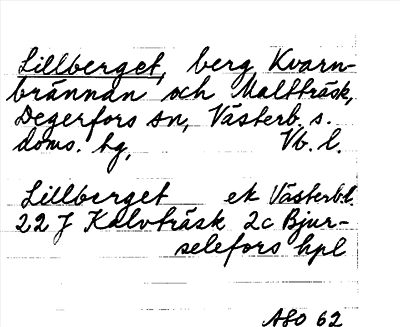 Lillberget, berg Kvarn-
brännan och Maltträsk,
Degerfors sn, Västerb. s.
doms. hg, Vb. l.
Lillberget ek Västerbt.
22 J Kalvträsk 2c Bjur-
selefors hpl
ASO 62